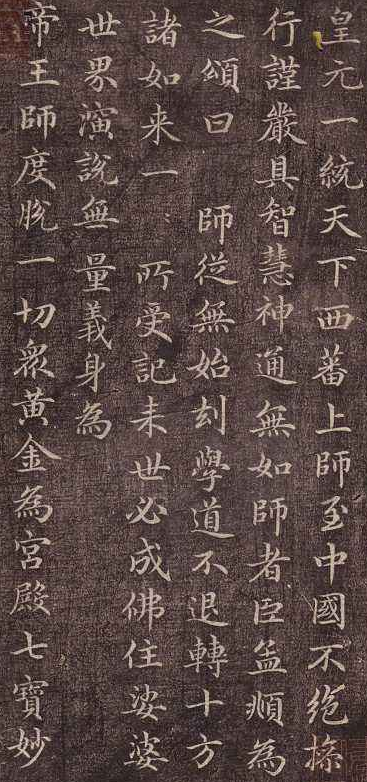 皇元一統天下西蕃上師至中國不絕操
行謹嚴具智慧神通無如師者臣孟頫為
之頌曰 師從無始刼學道不退轉十方
諸如来一一所受記来世必成佛住娑婆
世界演說無量義身為
帝王師度脫一切眾黃金為宮殿七寶妙